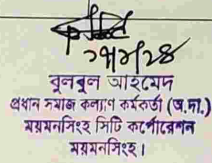 ২৭/১/২৪
বুলবুল আহমেদ
প্রধান সমাজ কল্যাণ কর্মকর্তা (অ.দা.)
ময়মনসিংহ সিটি কর্পোরেশন
ময়মনসিংহ।